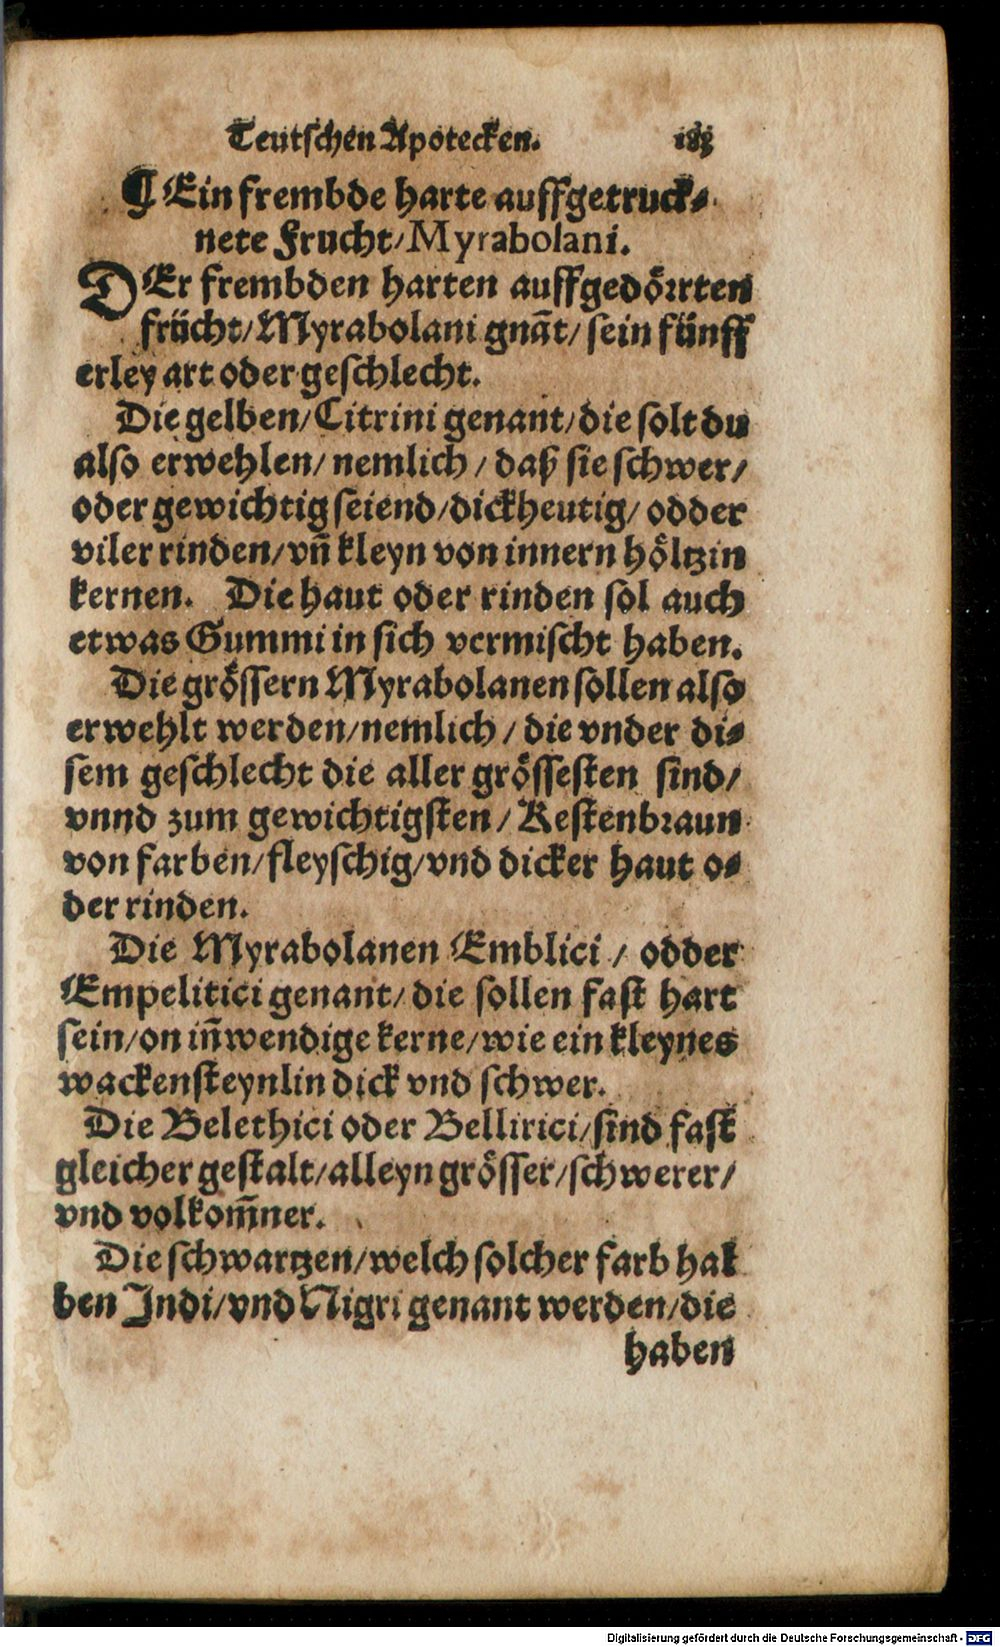 Teutschen Apotecken. 183
¶ Ein frembde harte auffgetruck⸗
nete Frucht/Myrabolani.
DEr frembden harten auffgedörrten
frücht/Myrabolani gnāt/sein fünff
erley art oder geschlecht.
Die gelben/Citrini genant/die solt du
also erwehlen/nemlich/daß sie schwer/
oder gewichtig seiend/dickheutig/odder
viler rinden/vn̄ kleyn von innern höltzin
kernen. Die haut oder rinden sol auch
etwas Gummi in sich vermischt haben.
Die grössern Myrabolanen sollen also
erwehlt werden/nemlich/die vnder di⸗
sem geschlecht die aller grössesten sind/
vnnd zum gewichtigsten/Kestenbraun
von farben/fleyschig/vnd dicker haut o⸗
der rinden.
Die Myrabolanen Emblici/odder
Empelitici genant/die sollen fast hart
sein/on in̄wendige kerne/wie ein kleynes
wackensteynlin dick vnd schwer.
Die Belethici oder Bellirici/sind fast
gleicher gestalt/alleyn grösser/schwerer/
vnd volkom̄ner.
Die schwartzen/welch solcher farb ha⸗
ben Indi/vnd Nigri genant werden/die
haben
Digitalisierung gefördert durch die Deutsche Forschungsgemeinschaft - DFG